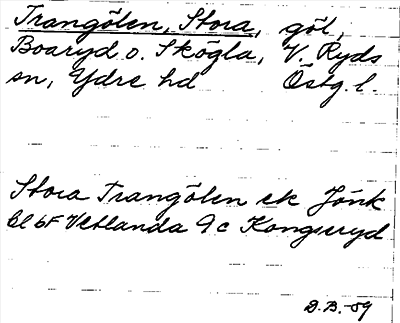 Trangölen, Stora, göl,
Boaryd o. Skögla, V. Ryds
sn, Ydre hd Östg. l.
Stora Trangölen ek Jönk
bl 6F Vetlanda 9c Kongseryd
D.B. -59